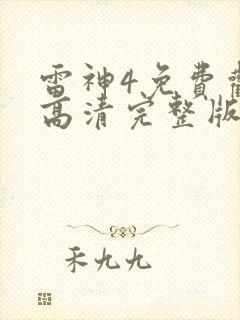 雷神4免费
高清完整版
禾九九